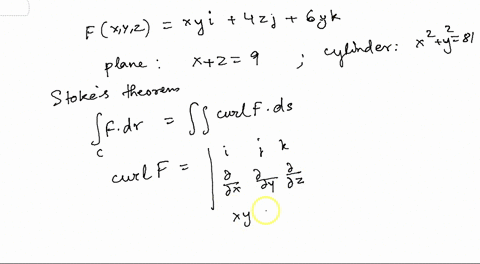 F(x,y,z) = xyi + 4zj + 6yk
plane: x+z=9 ; cylinder: x²+y²=81
Stoke's theorem
∫_C F.dr = ∬ curlF.ds
curlF = | i j k
∂/∂x ∂/∂y ∂/∂z
xy